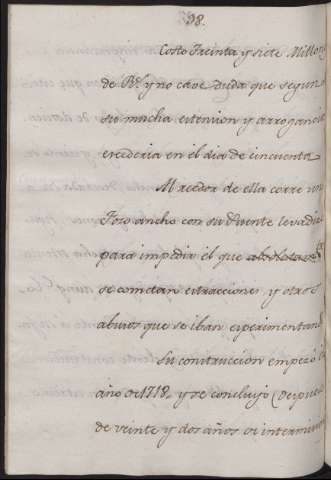 38.
Costo Treinta y siete Millon
de Rs. y no cave duda que segun
su mucha estension y arrogancia
excederia en el dia de cincuenta
Al rrededor de ella corre un
Foso ancho con su Puente levadi
para impedir el que
se cometan estracciones y otros
abusos que se iban esperimentand
Su construccion empezó
año de 1718, y se concluyó (despues
de veinte y dos años de intermi